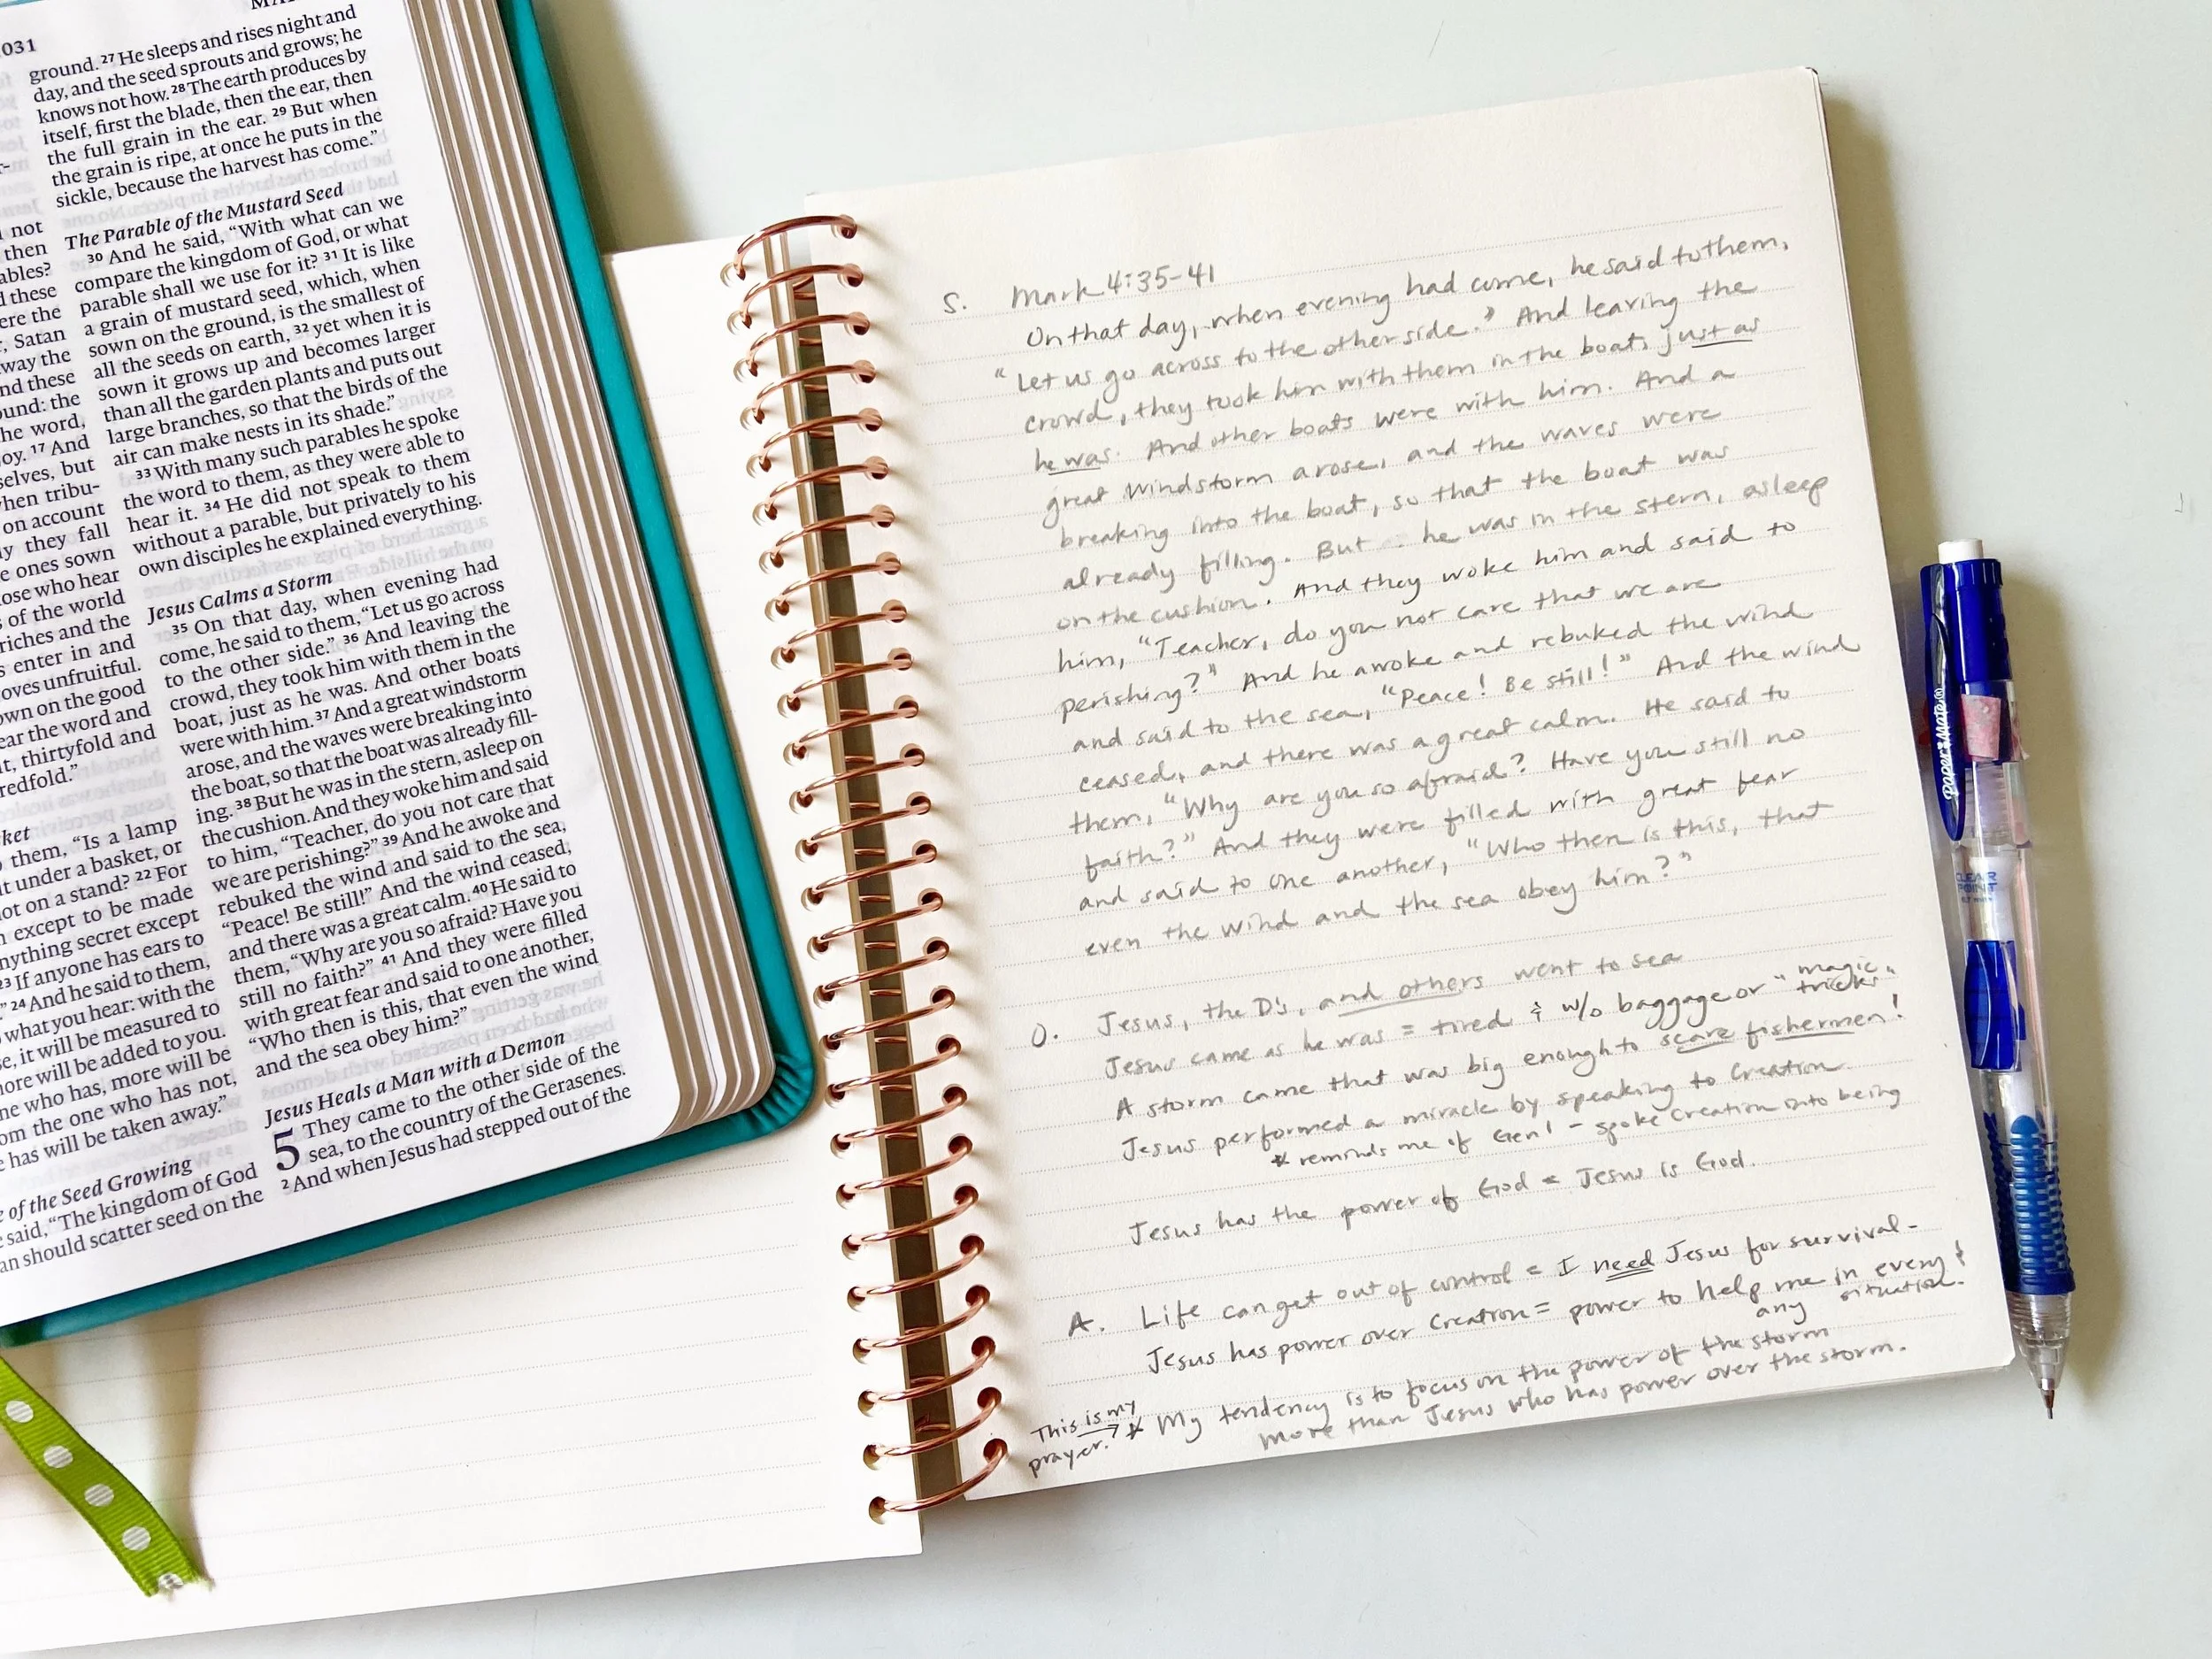 031
MA
not
then
ables?
d these
ere the
, Satan
way the
nd these
ound: the
he word,
oy. 17 And
selves, but
when tribu-
on account
ly they fall
e ones sown
ose who hear
s of the world
riches and the
s enter in and
oves unfruitful.
own on the good
ear the word and
it, thirtyfold and
redfold.”
ket
o them, “Is a lamp
ut under a basket, or
not on a stand? 22 For
n except to be made
nything secret except
23 If anyone has ears to
” 24 And he said to them,
what you hear: with the
se, it will be measured to
more will be added to you.
ne who has, more will be
om the one who has not,
e has will be taken away.”
e of the Seed Growing
e said, “The kingdom of God
an should scatter seed on the
ground. 27 He sleeps and rises night and
day, and the seed sprouts and grows; he
knows not how. 28 The earth produces by
itself, first the blade, then the ear, then
the full grain in the ear. 29 But when
the grain is ripe, at once he puts in the
sickle, because the harvest has come.”
The Parable of the Mustard Seed
30 And he said, “With what can we
compare the kingdom of God, or what
parable shall we use for it? 31 It is like
a grain of mustard seed, which, when
sown on the ground, is the smallest of
all the seeds on earth, 32 yet when it is
sown it grows up and becomes larger
than all the garden plants and puts out
large branches, so that the birds of the
air can make nests in its shade.”
33 With many such parables he spoke
the word to them, as they were able to
hear it. 34 He did not speak to them
without a parable, but privately to his
own disciples he explained everything.
Jesus Calms a Storm
35 On that day, when evening had
come, he said to them, “Let us go across
to the other side.” 36 And leaving the
crowd, they took him with them in the
boat, just as he was. And other boats
were with him. 37 And a great windstorm
arose, and the waves were breaking into
the boat, so that the boat was already fill-
ing. 38 But he was in the stern, asleep on
the cushion. And they woke him and said
to him, “Teacher, do you not care that
we are perishing?” 39 And he awoke and
rebuked the wind and said to the sea,
“Peace! Be still!” And the wind ceased,
and there was a great calm. 40 He said to
them, “Why are you so afraid? Have you
still no faith?” 41 And they were filled
with great fear and said to one another,
“Who then is this, that even the wind
and the sea obey him?”
Jesus Heals a Man with a Demon
5 They came to the other side of the
sea, to the country of the Gerasenes.
2 And when Jesus had stepped out of the
S. Mark 4:35-41
On that day, when evening had come, he said to them,
“Let us go across to the other side.” And leaving the
crowd, they took him with them in the boat, just as
he was. And other boats were with him. And a
great windstorm arose, and the waves were
breaking into the boat, so that the boat was
already filling. But he was in the stern, asleep
on the cushion. And they woke him and said to
him, “Teacher, do you not care that we are
perishing?” And he awoke and rebuked the wind
and said to the sea, “Peace! Be still!” And the wind
ceased, and there was a great calm. He said to
them, “Why are you so afraid? Have you still no
faith?” And they were filled with great fear
and said to one another, “Who then is this, that
even the wind and the sea obey him?”
O. Jesus, the D's, and others went to sea
Jesus came as he was = tired & w/o baggage or “magic tricks”
A storm came that was big enough to scare fishermen!
Jesus performed a miracle by speaking to Creation.
* reminds me of Gen 1 - spoke Creation into being
Jesus has the power of God = Jesus is God.
A. Life can get out of control = I need Jesus for survival -
Jesus has power over Creation = power to help me in every &
any situation.
This is my prayer. → * My tendency is to focus on the power of the storm
more than Jesus who has power over the storm.
PaperMate®
CLEAR
POINT